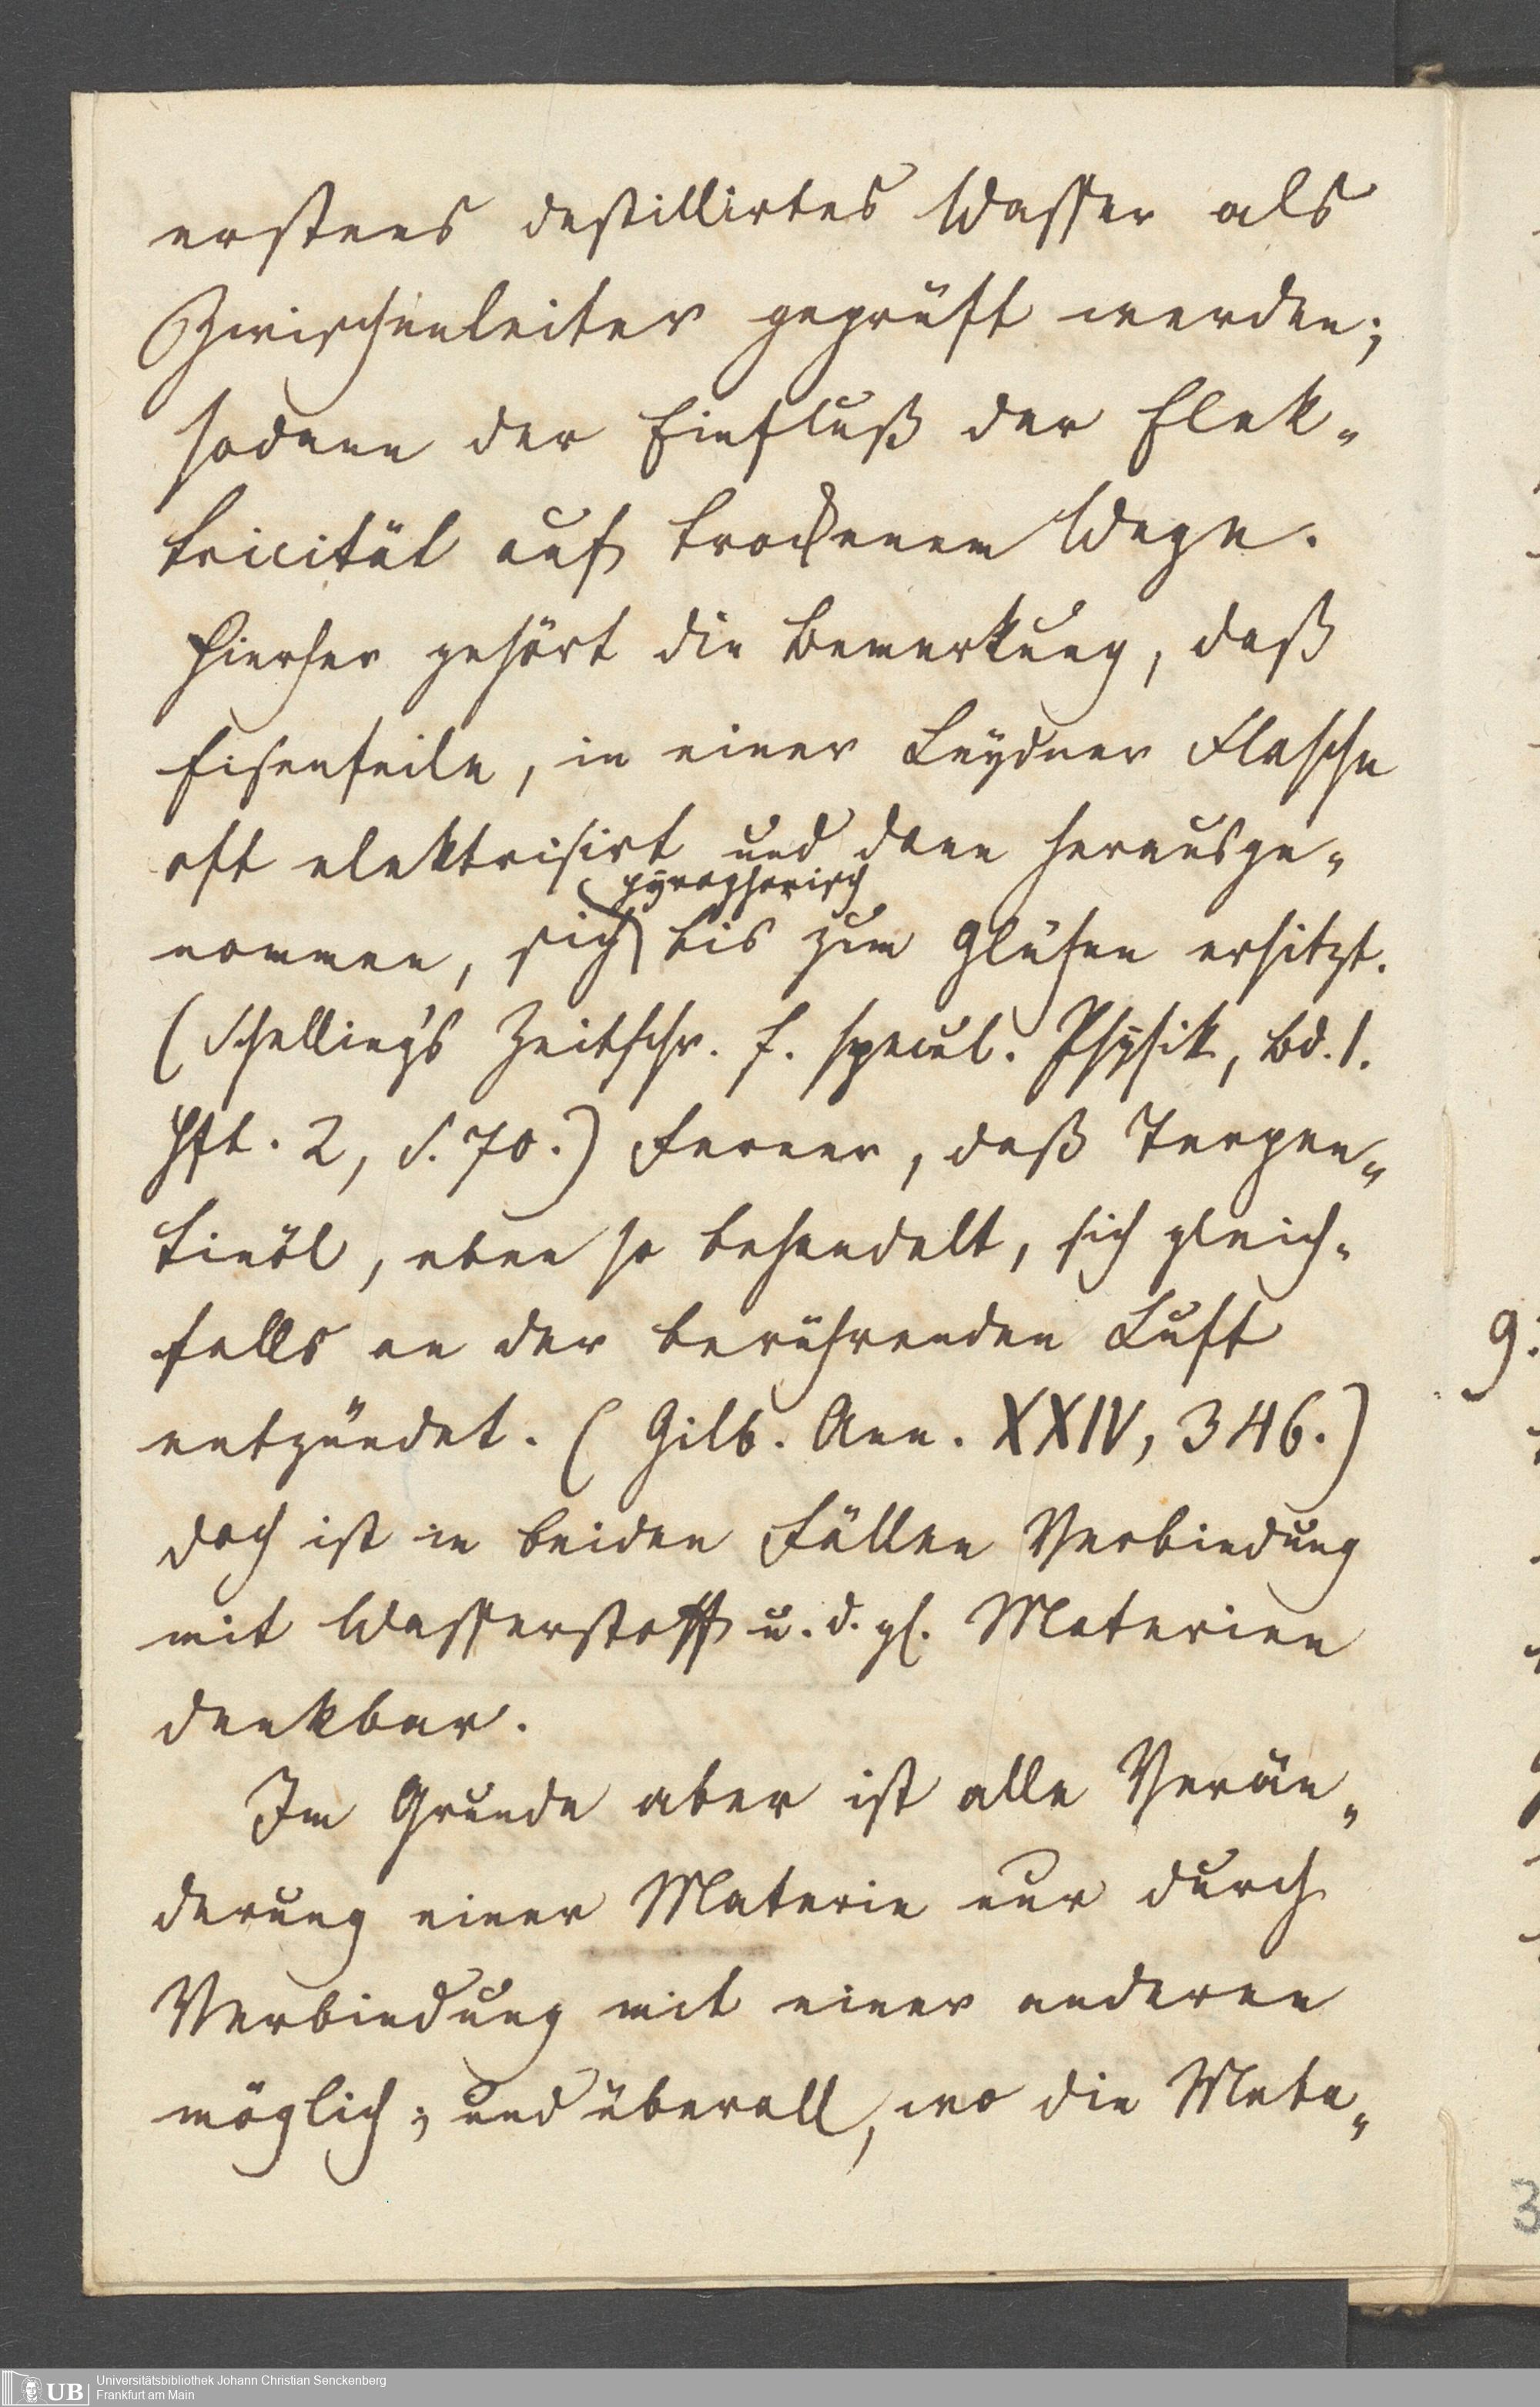 erstens destillirtes Wasser als
Zwischenleiter geprüft werden;
sodann der Einfluß der Elek-
tricität auf trockenem Wege.
Hierher gehört die Bemerkung, daß
Eisenfeile, in einer Leydner Flasche
oft elektrisirt und dann herausge-
pyrophorisch
nommen, sich bis zum Glühen erhitzt.
(Schelling's Zeitschr. f. specul. Physik, Bd. 1.
Hft. 2, S. 70.) Ferner, daß Terpen-
tinöl, eben so behandelt, sich gleich-
falls an der berührenden Luft
entzündet. (Gilb. Ann. XXIV, 346.)
doch ist in beiden Fällen Verbindung
mit Wasserstoff u. d. gl. Materien
denkbar.
Im Grunde aber ist alle Verän-
derung einer Materie nur durch
Verbindung mit einer anderen
möglich; und überall, wo die Mate-
9:
3
UB
Universitätsbibliothek Johann Christian Senckenberg
Frankfurt am Main